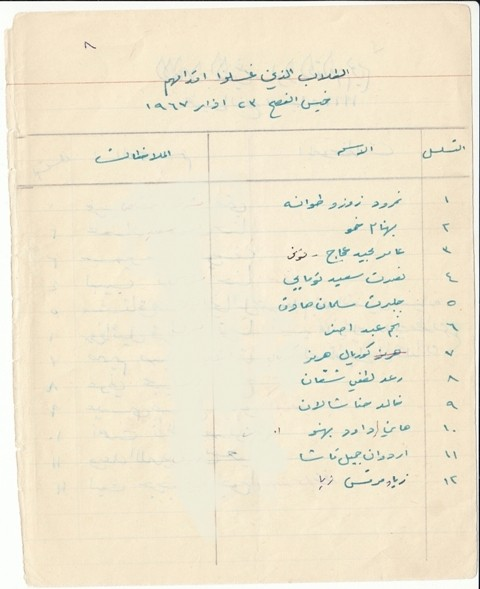 ٨
الطلاب الذين غسلوا اقدامهم
خميس الفصح ٢٣ اذار ١٩٦٧
التسلسل الاسم الملاحظات
١ نمرود زوزو طوانه
٢ بهنام ممو
٣ عامر مجيد عجاج - توفي
٤ نصرت سعيد توماس
٥ جلبرت سلمان صادق
٦ نجم عبد احد
٧ كوريال هرمز
٨ رعد لطفي شمعان
٩ خالد حنا شالان
١٠ هاني داود بهنو
١١ اردوان جميل
١٢ زياد مرقس